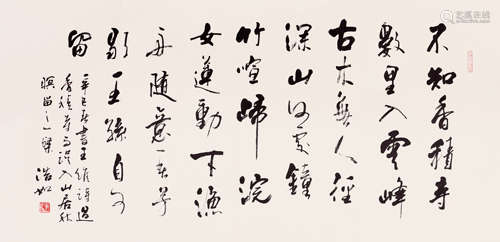 不知香積寺
數里入雲峰
古木無人徑
深山何處鐘
竹喧歸浣
女蓮動下漁
舟隨意春芳
歇王孫自可
留
辛巳春書王維詩過
香積寺 山居秋
暝 浩如